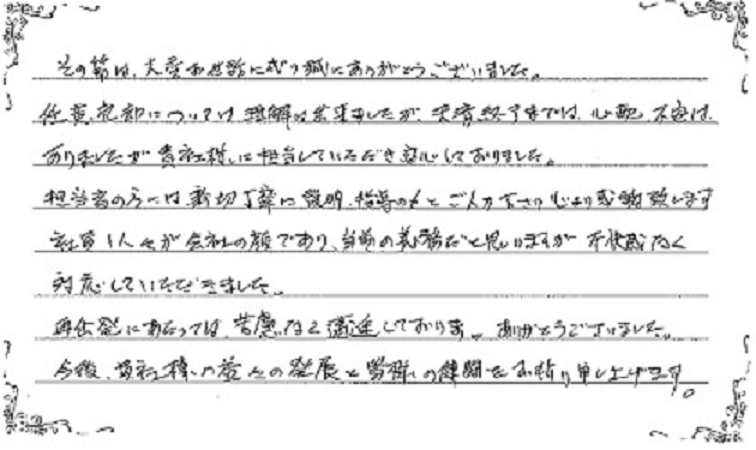 その節は、大変お世話に成り誠にありがとうございました。
任意売却については理解は出来ましたが、決済終了までは、心配、不安は、
ありましたが貴社様に担当していただき安心しておりました。
担当者の方には親切丁寧に説明、指導のもとご尽力下さり心より感謝致します
社員1人々が会社の顔であり、当然の義務だと思いますが不快感なく
対応していただきました。
再出発にあたっては、苦慮なく しております。ありがとうございました。
今後、貴社様の益々の発展と皆様の健闘をお祈り申し上げます。